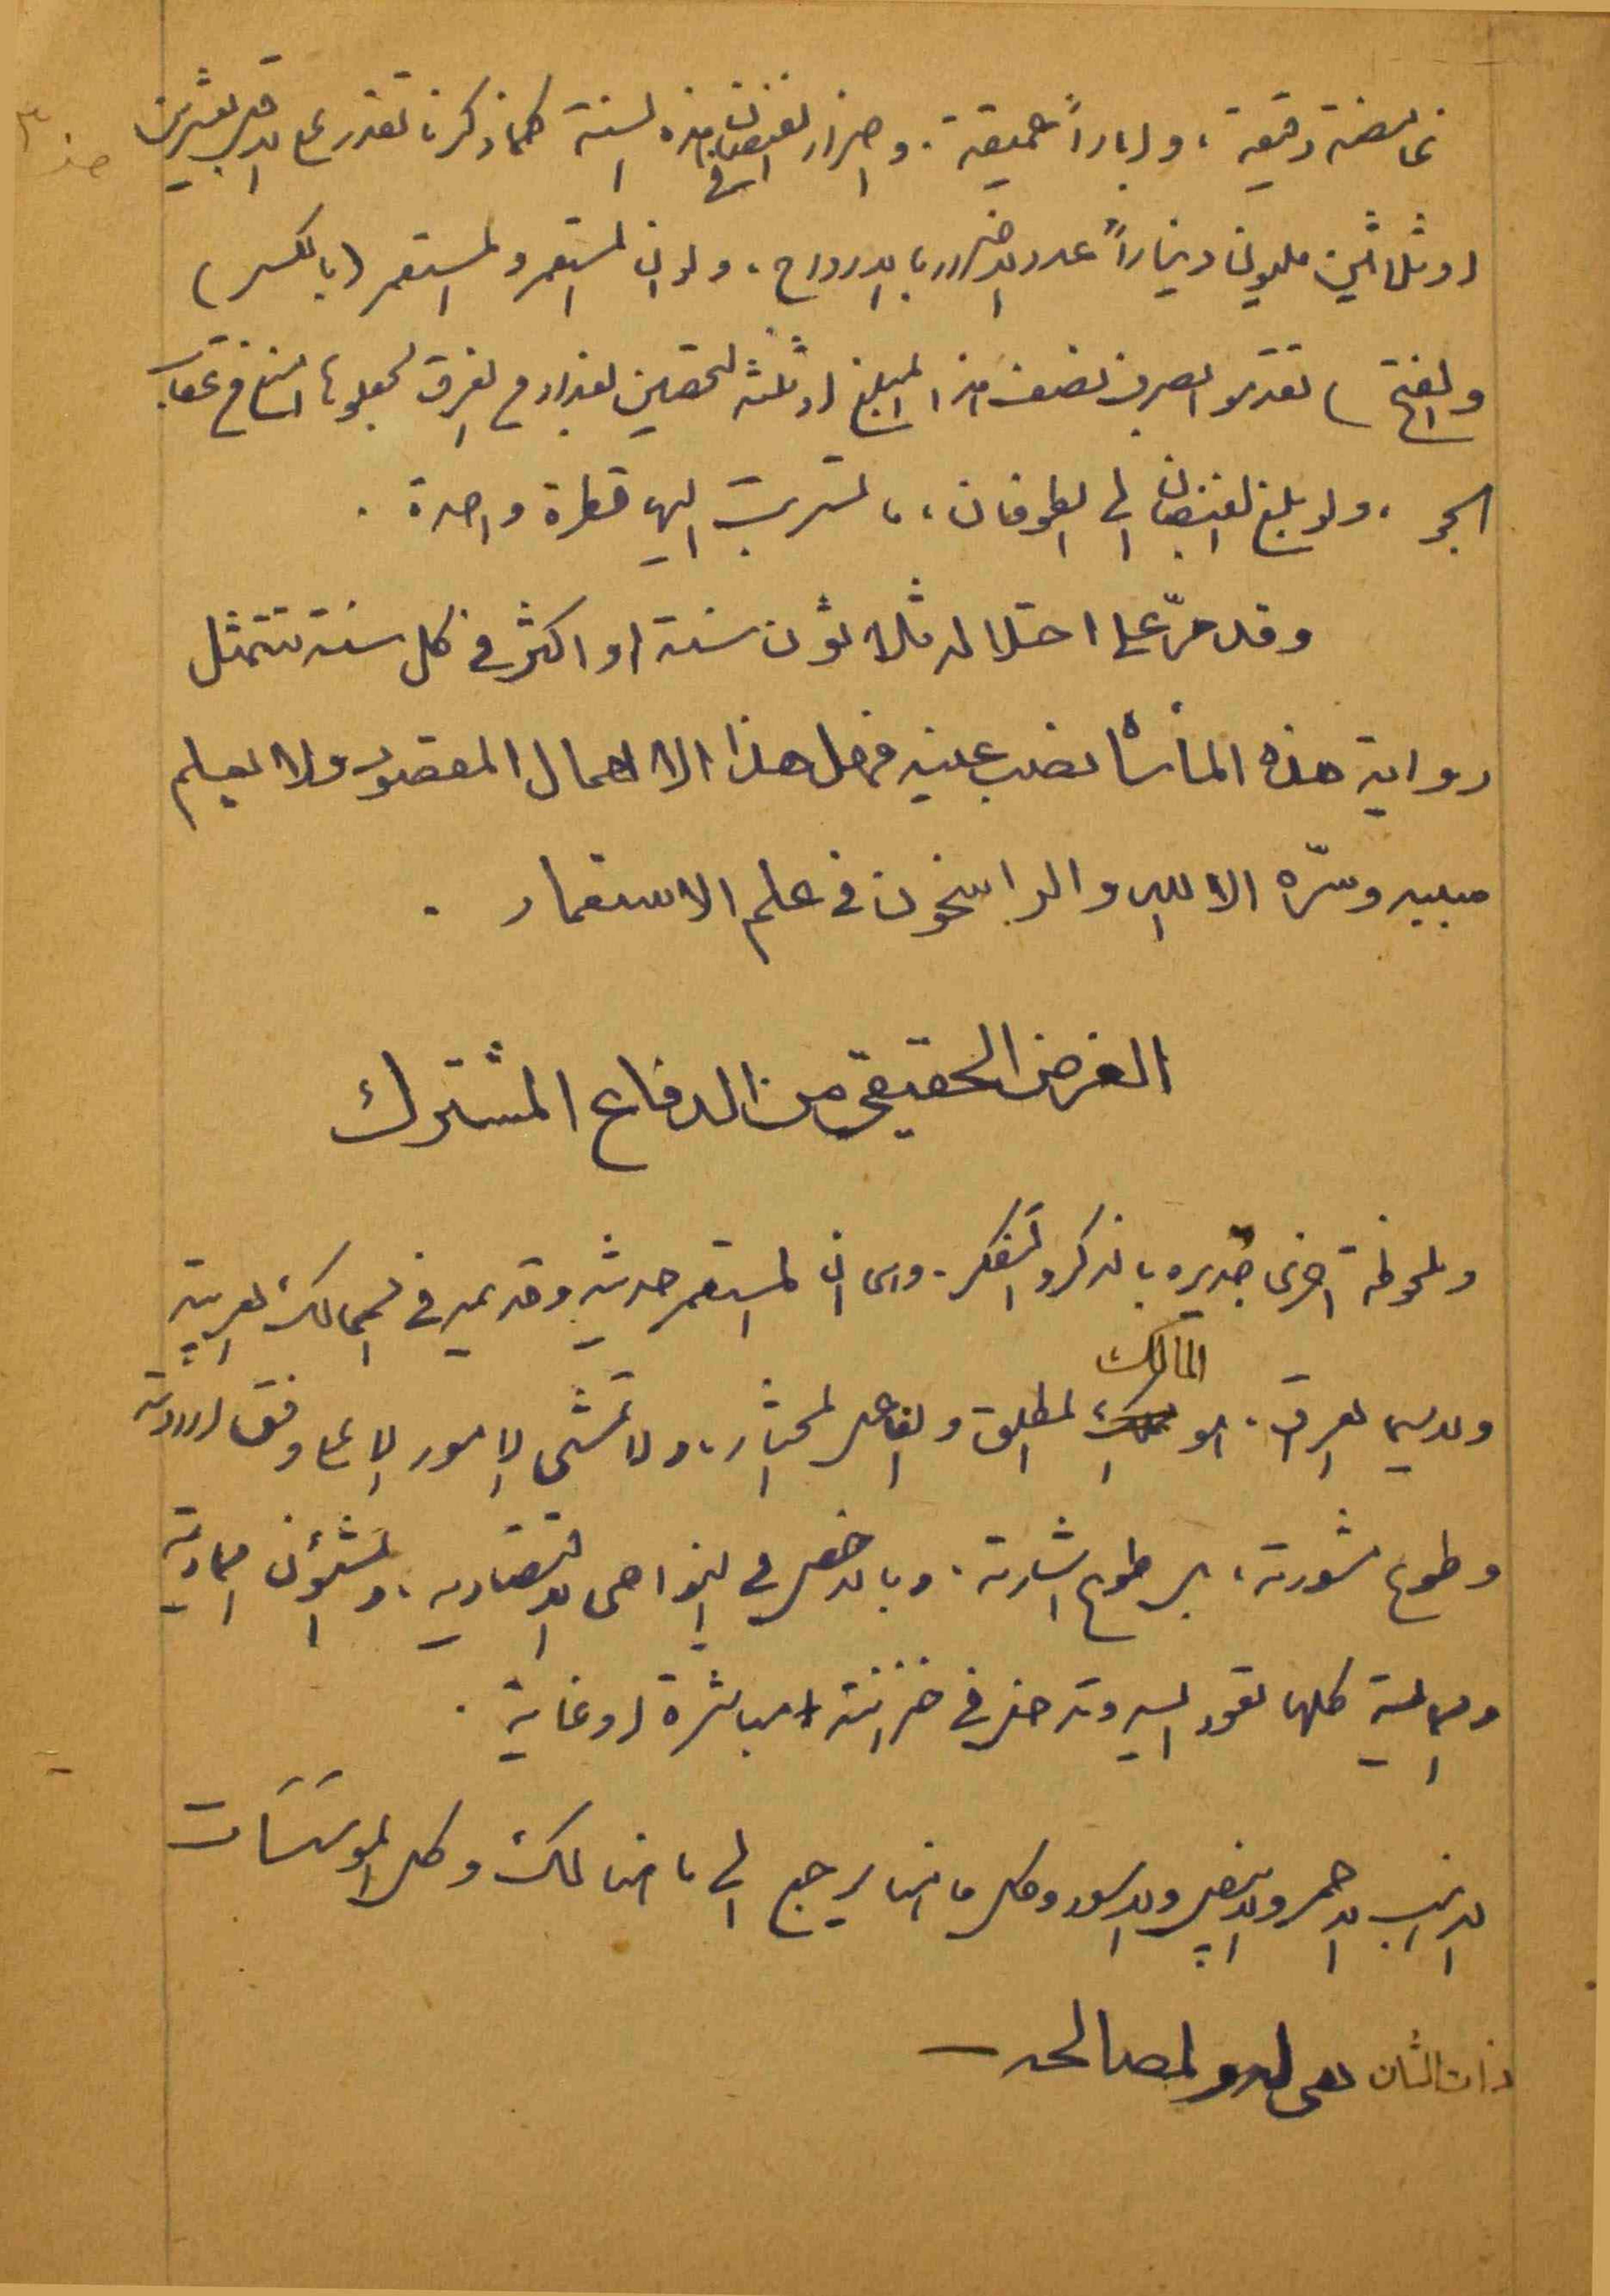 غامضة دقيقة، وابارا عميقة. واضرار الفيضان في هذه السنة كما ذكرنا تقدر على الاقل بعشرين
او ثلاثين مليونا ديناراً عدا الاضرار بالارواح، ولو ان المستعمر والمستعمر (بالكسر
والفتح) تقدموا لصرف نصف هذا المبلغ او ثلثه لتحصين بغداد من الغرق لجعلوها امنع من عقاب
الجو، ولو بلغ الفيضان الى الطوفان، ما تسربت اليها قطرة واحدة.
وقد مرّ على احتلاله ثلاثون سنة او اكثر في كل سنة تتمثل
رواية هذه المأساة نصب عينيه فهل هذا الا اهمال المقصود ولا يعلم
سببه وسرّه الا الله والراسخون في علم الاستعمار.
الغرض الحقيقي من الدفاع المشترك
وملحوظة اخرى جديره بالذكر والتفكر. وهي ان المستعمر حديثه وقديمه في الممالك العربية
ولاسيما العراق. هو المالك المطلق والفاعل المختار، ولا تمشي الامور الا على وفق ارادته
وطوع مشورته، بل طوع اشارته. وبالاخص في النواحي الاقتصاديه، والشئون المادية
والمالية كلها تعود اليه وتدخل في خزانته مباشرة او غاية.
الذهب الاحمر والابيض والاسود وكل ما هنا يرجع الى ما هنالك وكل المؤسسات
ذات الشان هي له ولمصالحه —